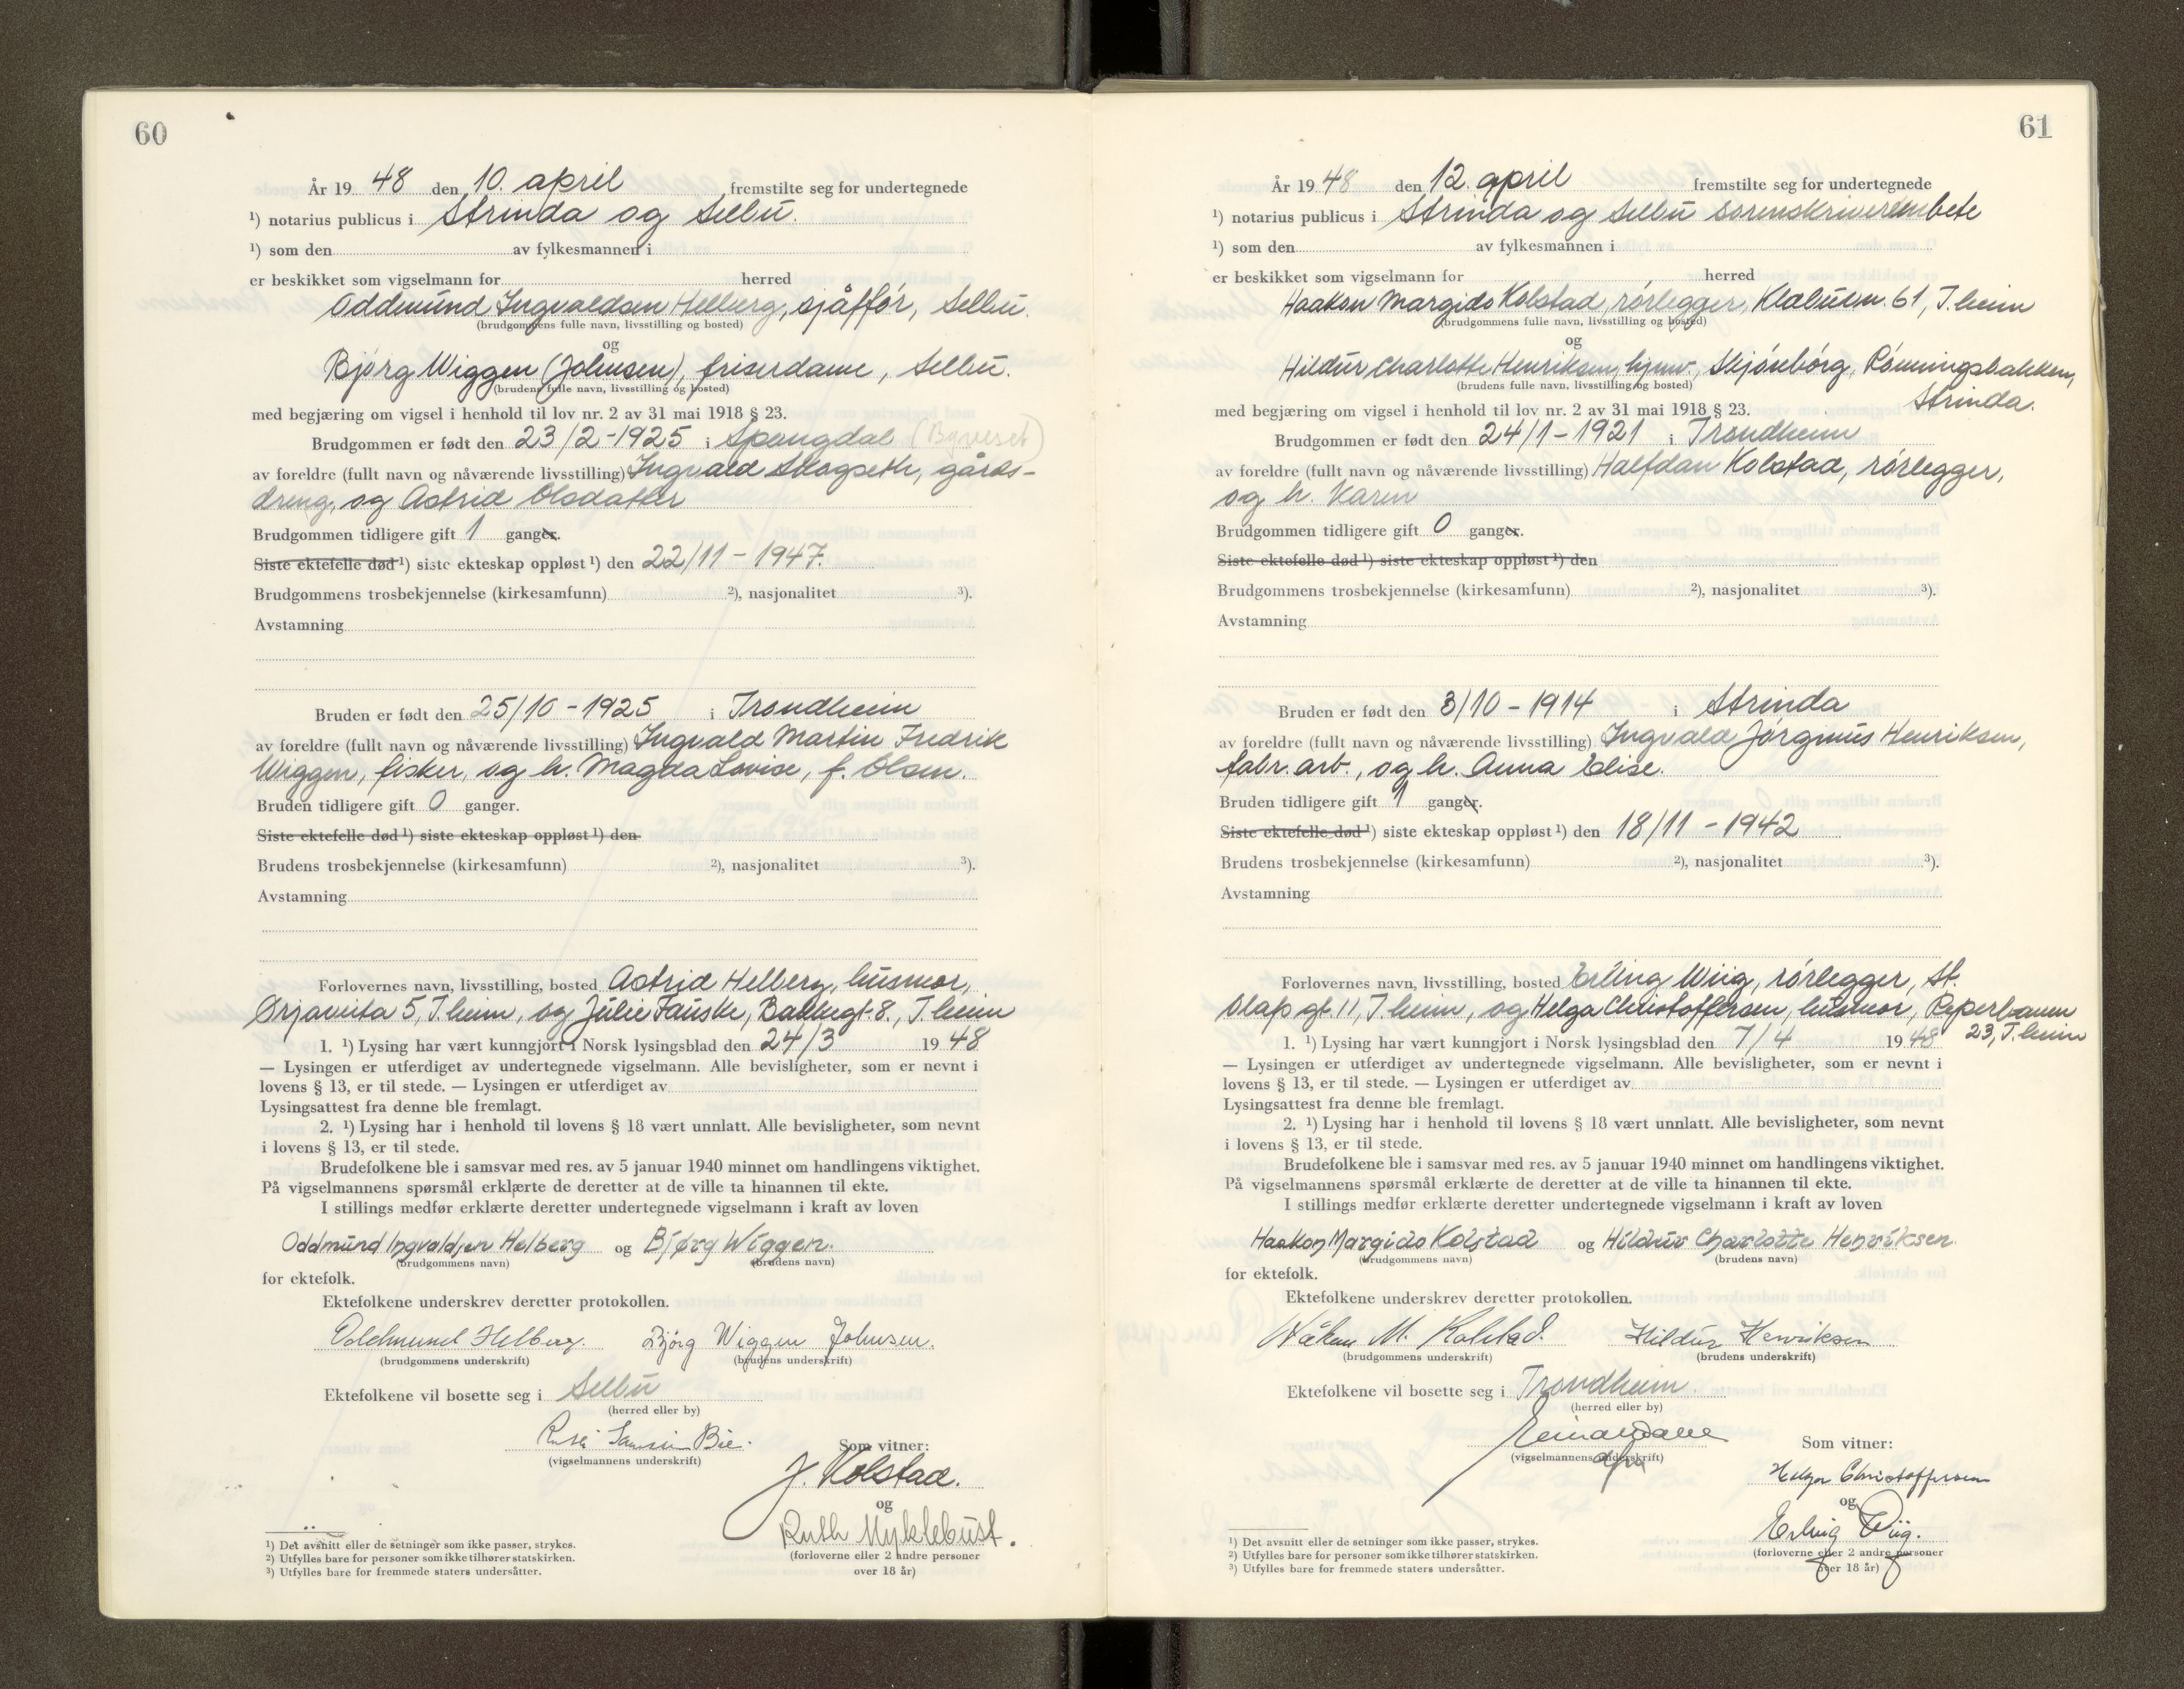 60
År 19 48 den 10. april fremstilte seg for undertegnede
¹) notarius publicus i Strinda og Selbu.
¹) som den av fylkesmannen i
er beskikket som vigselmann for herred
Oddmund Ingvaldsen Helberg, sjåffør, Selbu.
(brudgommens fulle navn, livsstilling og bosted)
og
Bjørg Wiggen (Johnsen), friserdame, Selbu.
(brudens fulle navn, livsstilling og bosted)
med begjæring om vigsel i henhold til lov nr. 2 av 31 mai 1918 § 23.
Brudgommen er født den 23/2-1925 i Spongdal (Byneset)
av foreldre (fullt navn og nåværende livsstilling) Ingvald Skogseth, gårds-
dreng, og Astrid Olsdatter
Brudgommen tidligere gift 1 ganger.
Siste ektefelle død ¹) siste ekteskap oppløst ¹) den 22/11 - 1947.
Brudgommens trosbekjennelse (kirkesamfunn) ²), nasjonalitet ³).
Avstamning
Bruden er født den 25/10 - 1925 i Trondheim
av foreldre (fullt navn og nåværende livsstilling) Ingvald Martin Fredrik
Wiggen, fisker, og h. Magda Lovise, f. Olsen.
Bruden tidligere gift 0 ganger.
Siste ektefelle død ¹) siste ekteskap oppløst ¹) den
Brudens trosbekjennelse (kirkesamfunn) ²), nasjonalitet ³).
Avstamning
Forlovernes navn, livsstilling, bosted Astrid Helberg, husmor,
5, T.heim, og Julie Fauske, Bakkegt. 8., T.heim
1. ¹) Lysing har vært kunngjort i Norsk lysingsblad den 24/3 19 48
— Lysingen er utferdiget av undertegnede vigselmann. Alle bevisligheter, som er nevnt i
lovens § 13, er til stede. — Lysingen er utferdiget av
Lysingsattest fra denne ble fremlagt.
2. ¹) Lysing har i henhold til lovens § 18 vært unnlatt. Alle bevisligheter, som nevnt
i lovens § 13, er til stede.
Brudefolkene ble i samsvar med res. av 5 januar 1940 minnet om handlingens viktighet.
På vigselmannens spørsmål erklærte de deretter at de ville ta hinannen til ekte.
I stillings medfør erklærte deretter undertegnede vigselmann i kraft av loven
Oddmund Ingvaldsen Helberg og Bjørg Wiggen.
(brudgommens navn) (brudens navn)
for ektefolk.
Ektefolkene underskrev deretter protokollen.
Oddmund Helberg. Bjørg Wiggen Johnsen.
(brudgommens underskrift) (brudens underskrift)
Ektefolkene vil bosette seg i Selbu
(herred eller by)
(vigselmannens underskrift)
Som vitner:
J. Kolstad.
og
Ruth Myklebust.
(forloverne eller 2 andre personer
over 18 år)
¹) Det avsnitt eller de setninger som ikke passer, strykes.
²) Utfylles bare for personer som ikke tilhører statskirken.
³) Utfylles bare for fremmede staters undersåtter.
61
År 19 48 den 12. april fremstilte seg for undertegnede
¹) notarius publicus i Strinda og Selbu sorenskriverembete
¹) som den av fylkesmannen i
er beskikket som vigselmann for herred
Haakon Margido Kolstad, rørlegger, Klæbuvn. 61, T.heim
(brudgommens fulle navn, livsstilling og bosted)
og
Hildur Charlotte Henriksen, hjmv., Skjønborg, Rønningsbakken,
(brudens fulle navn, livsstilling og bosted)
Strinda.
med begjæring om vigsel i henhold til lov nr. 2 av 31 mai 1918 § 23.
Brudgommen er født den 24/1 - 1921 i Trondheim
av foreldre (fullt navn og nåværende livsstilling) Halfdan Kolstad, rørlegger,
og h. Karen
Brudgommen tidligere gift 0 ganger.
Siste ektefelle død ¹) siste ekteskap oppløst ¹) den
Brudgommens trosbekjennelse (kirkesamfunn) ²), nasjonalitet ³).
Avstamning
Bruden er født den 3/10 - 1914 i Strinda
av foreldre (fullt navn og nåværende livsstilling) Ingvald Jørginus Henriksen,
fabr. arb., og h. Anna Elise.
Bruden tidligere gift 1 ganger.
Siste ektefelle død ¹) siste ekteskap oppløst ¹) den 18/11 - 1942
Brudens trosbekjennelse (kirkesamfunn) ²), nasjonalitet ³).
Avstamning
Forlovernes navn, livsstilling, bosted Erling Wiig, rørlegger, St.
Olafs gt. 11, T.heim, og Helga Christoffersen, husmor, Reperbanen
23, T.heim
1. ¹) Lysing har vært kunngjort i Norsk lysingsblad den 7/4 19 48
— Lysingen er utferdiget av undertegnede vigselmann. Alle bevisligheter, som er nevnt i
lovens § 13, er til stede. — Lysingen er utferdiget av
Lysingsattest fra denne ble fremlagt.
2. ¹) Lysing har i henhold til lovens § 18 vært unnlatt. Alle bevisligheter, som nevnt
i lovens § 13, er til stede.
Brudefolkene ble i samsvar med res. av 5 januar 1940 minnet om handlingens viktighet.
På vigselmannens spørsmål erklærte de deretter at de ville ta hinannen til ekte.
I stillings medfør erklærte deretter undertegnede vigselmann i kraft av loven
Haakon Margido Kolstad og Hildur Charlotte Henriksen.
(brudgommens navn) (brudens navn)
for ektefolk.
Ektefolkene underskrev deretter protokollen.
Håkon M. Kolstad. Hildur Henriksen
(brudgommens underskrift) (brudens underskrift)
Ektefolkene vil bosette seg i Trondheim.
(herred eller by)
(vigselmannens underskrift)
Som vitner:
Helga Christoffersen
og
Erling Wiig.
(forloverne eller 2 andre personer
over 18 år)
¹) Det avsnitt eller de setninger som ikke passer, strykes.
²) Utfylles bare for personer som ikke tilhører statskirken.
³) Utfylles bare for fremmede staters undersåtter.